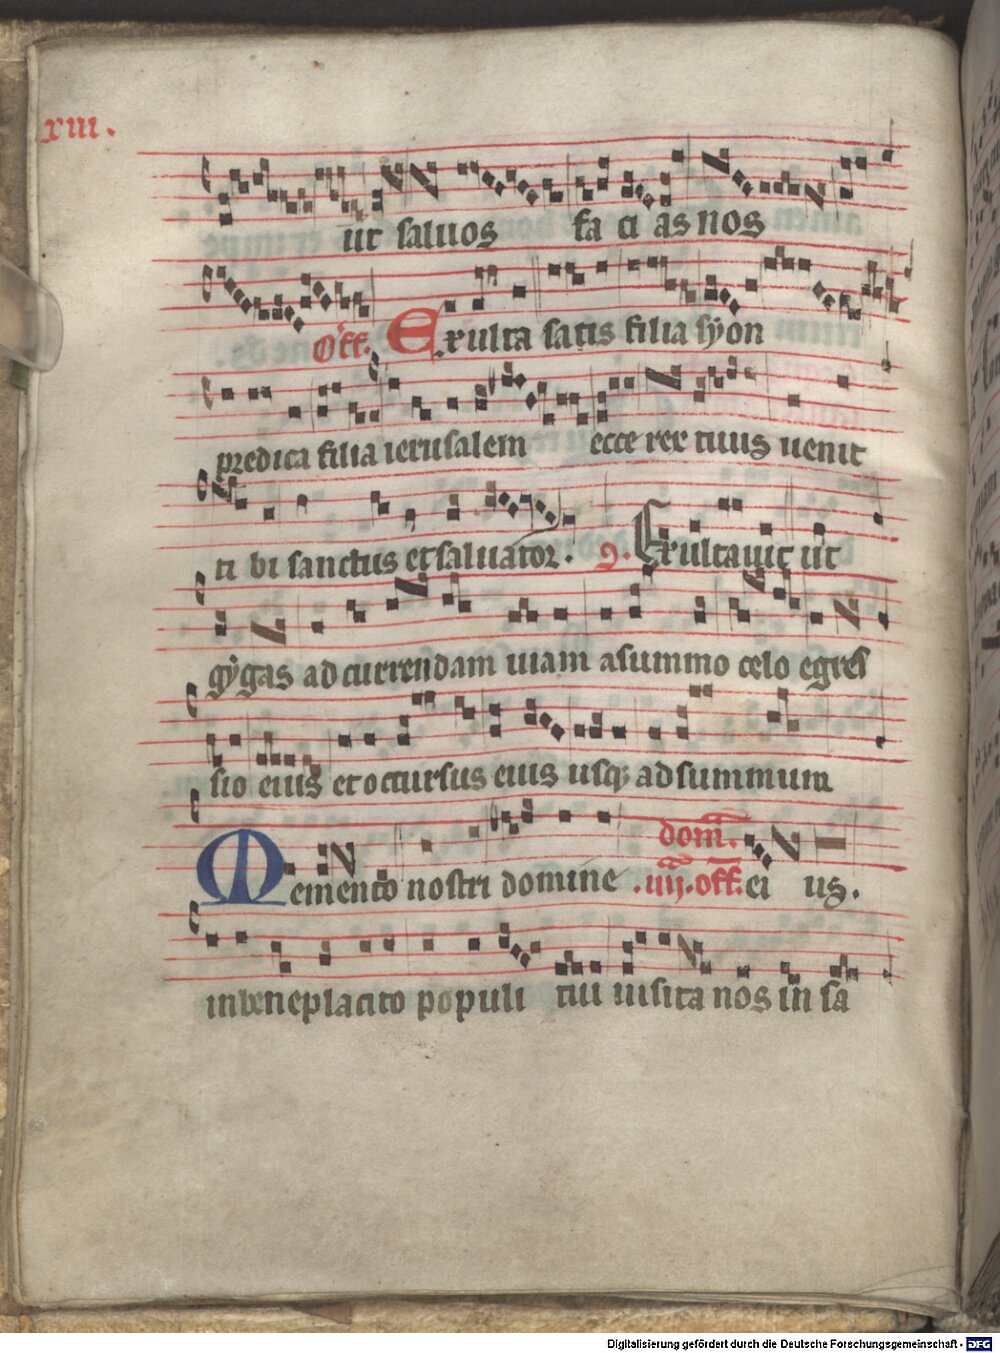 xiii.
ut saluos fa ci as nos
Off. Exulta satis filia syon
predica filia ierusalem ecce rex tuus uenit
ti bi sanctus et saluator. Exultauit ut
gygas ad currendam uiam a summo celo egres
sio eius et occursus eius usq; ad summum
Memento nostri domine dom. .iiij. off. ei us.
in beneplacito populi tui uisita nos in sa
Digitalisierung gefördert durch die Deutsche Forschungsgemeinschaft - DFG